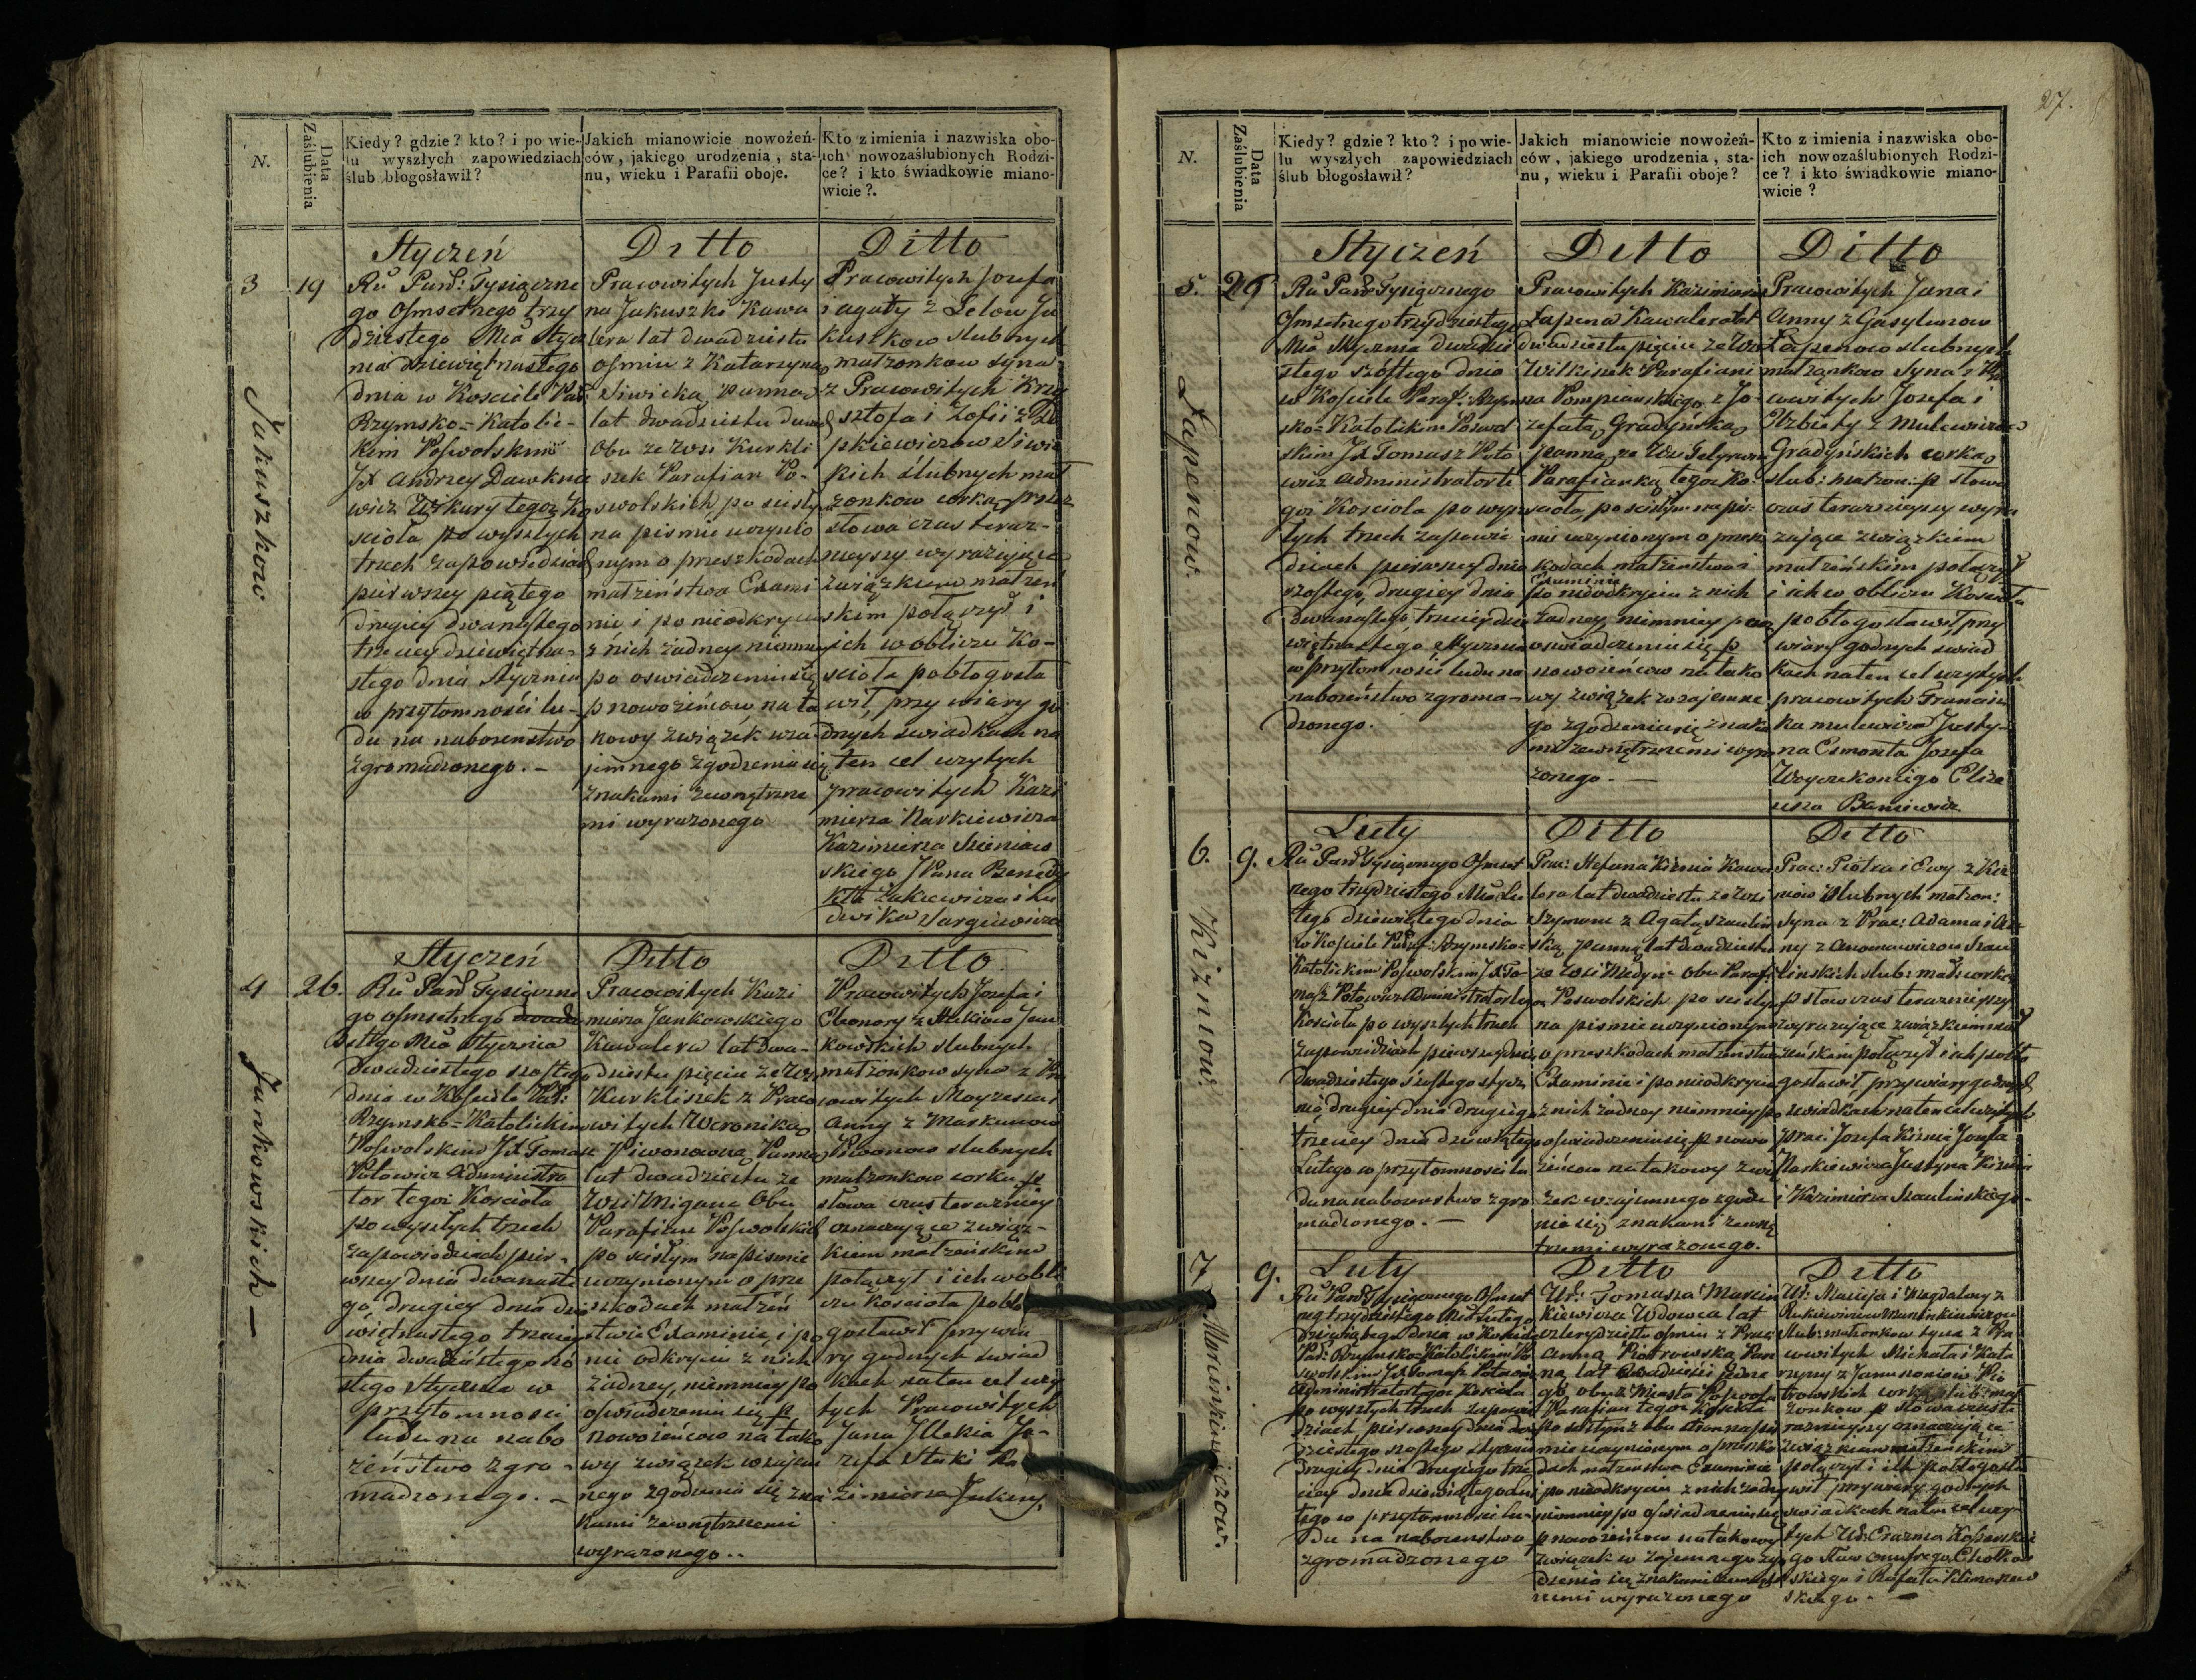 27.
N.
Data Zaślubienia
Kiedy? gdzie? kto? i po wie-
lu wyszłych zapowiedziach
ślub błogosławił?
Jakich mianowicie nowożeń-
ców, jakiego urodzenia, sta-
nu, wieku i Parafii oboje.
Kto z imienia i nazwiska obo-
ich nowozaślubionych Rodzi-
ce? i kto świadkowie miano-
wicie?.
Styczeń
Ditto
Ditto
3
19
Jakuszkow
Ru Pań: Tysiączne
go Osmsetnego trzy
dziestego Mca Stycz
nia dziewiętnastego
dnia w Kosciele Par:
Rzymsko=Katolic-
kim Poswolskim
JX Andrzey Dawkna
wicz Wikary tegoż Ko
scioła po wyszłych
trzech zapowiedziach
pierwszey piątego
drugiey dwunastego
trzeciey dziewiętna-
stego dnia Stycznia
w przytomności lu-
du na nabożenstwo
zgromadzonego. –
Pracowitych Justy
na Jakuszki Kawa
lera lat dwadziestu
osmiu z Katarzyną
Siwicką Panną
lat dwadziestu dwuch
Obu ze Wsi Kurkli
szek Parafian Po-
swolskich, po scisły
na pismie uczynio
nym o przeszkodach
małżeństwa Exami
nie i po nieodkryciu
z nich żadney niemniey
po oswiadczeniu się
p nowożeńcow na ta
kowy związek wza-
jemnego zgodzenia się
znakami zewnętrzne
mi wyrazonego
Pracowitych Jozefa
i Agaty z Lelow Ja
kuszkow slubnych
małzonkow syna
z Pracowitych Krzy
sztofa i Zofii z
pkiewiczow Siwic
kich ślubnych mał
zonkow corką przez
słowa czas teraz-
nieyszy wyrażające
związkiem małzeń
skim połączył i
ich w obliczu Ko-
scioła pobłogosła
wił, przy wiary go
dnych swiadkach na
ten cel uzytych
pracowitych Kazi
mierza Narkiewicza
Kazimierza
skiego JPana Benedy
kta Zakiewicza i Lu
dwika Jargiewicza
Styczeń
Ditto
Ditto.
4
26.
Jankowskich –
Ru Pań Tysiączne
go osmsetnego
stego Mca Stycznia
Dwudziestego szostego
dnia w Kosciele Par:
Rzymsko=Katolickim
Poswolskim JX Tomasz
Potowicz Administra
tor tegoż Kosciola
po wyszłych trzech
zapowiedziach pier-
wszey dnia dwunaste
go, drugiey dnia dzie
więtnastego trzeciey
dnia dwudziestego szo
stego Stycznia w
przytomnosci
ludu na nabo
żeństwo zgro-
madzonego. –
Pracowitych Kazi
mierza Jankowskiego
Kawalera lat dwa-
dziestu pięciu ze Wsi
Kurkliszek z Praco
witych Weroniką
Piwonowną Panną
lat dwadziestu ze
Wsi Migana Obu
Parafian Poswolskich
po scisłym na pismie
uczynionym o prze
szkodach małżeń
stwa Examinie, i po
nie odkryciu z nich
żadney, niemniey po
oswiadczeniu się p
nowożeńcow na tako
wy związek wzajem
nego zgodzenia się zna
kami zewnętrznemi
wyrazonego..
Pracowitych Jozefa i
Eleonory z Jan
kowskich slubnych
małzonkow syna z Pra
cowitych Moyzesza i
Anny z Maskunow
Piwonow slubnych
małzonkow corką p
słowa czas terazniey
oznaczające związ-
kiem małżeńskim
połączył i ich w obli
czu kosciola pobło
gosławił przy wia
ry godnych swiad
kach na ten cel uzy
tych Pracowitych
Jana Illekia Jo-
zefa Staki Ka
zimierza Jakusz.
N.
Data Zaślubienia
Kiedy? gdzie? kto? i po wie-
lu wyszłych zapowiedziach
ślub błogosławił?
Jakich mianowicie nowożeń-
ców, jakiego urodzenia, sta-
nu, wieku i Parafii oboje?
Kto z imienia i nazwiska obo-
ich nowozaślubionych Rodzi-
ce? i kto świadkowie miano-
wicie?
Styczeń
Ditto
Ditto
5.
26
Łapenow.
Ru Pań Tysiącznego
Osmsetnego trzydziestego
Mca Stycznia dwudzie
stego szostego dnia
w Kosciele Paraf: Rzym
sko=Katolickim Poswol
skim JX Tomasz Poto
wicz Administrator te
goż Kosciola po wysz
łych trzech zapowie
dziach pierwszey dnia
szostego, drugiey dnia
dwunastego, trzeciey dnia dzie
więtnastego Stycznia
w przytomności ludu na
nabożeństwo zgroma-
dzonego.
Pracowitych Kazimierza
Łapena Kawalera lat
dwadziestu pięciu ze Wsi
Wilkiszek Parafiani
na Pompianskiego z Jo-
zefatą Gradyńską
panną ze Wsi
Parafianką tegoż Ko-
scioła, po scisłym na pis-
mie uczynionym o przesz
kodach małżeństwa
Examinie
i po nieodkryciu z nich
żadney, niemniey po
oswiadczeniu się p
nowożeńcow na tako
wy związek wzajemne
go zgodzenia się znaka
mi zewnętrznemi wyra
zonego. –
Pracowitych Jana i
Anny z Gasylunow
Łapenow slubnych
małżonkow syna z Pra
cowitych Jozefa i
Elzbiety z Mulewiczow
Gradyńskich corką
slub: małzon: p słowa
czas teraznieyszy wyra
zające związkiem
małżeńskim połączył
i ich w obliczu Koscioła
pobłogosławił, przy
wiary godnych swiad
kach na ten cel uzytych
pracowitych Francisz
ka Mulewicza Justy-
na Esmonta Jozefa
Woyczkonlego Elize
usza Baniewicza
Luty
Ditto
Ditto
6.
9.
Kiżniow.
Ru Pań Tysiącznego Osmset
nego trzydziestego Mca Lu
tego dziewiątego dnia
w Kosciele Paraf: Rzymsko-
Katolickim Poswolskim JX To-
masz Potowicz Administrator tego
Kosciola po wyszłych trzech
zapowiedziach pierwszey dnia
dwudziestego szostego stycz
nia drugiey dnia drugiego
trzeciey dnia dziewiątego
Lutego w przytomnosci lu
du na nabożenstwo zgro
madzonego. –
Prac: Stefana Kiżnia Kawa
lera lat dwadziestu ze Wsi
Szyrwem z Agatą Szaulin
ską Panną lat dwadziestu
ze Wsi Medyn Obu Paraf:
Poswolskich po scisły
na pismie uczynionym
o przeszkodach małzenstwa
Examinie i po nieodkryciu
z nich żadney niemniey po
oswiadczeniu się p nowo
żeńcow na takowy zwią
zek wzajemnego zgodze
nia się znakami zewnę
trznemi wyrażonego.
Prac: Piotra i Ewy z Kiż
niow Slubnych małzon:
Syna z Prac: Adama i An-
ny z Adomowiczow Szau
linskich slub: małz: corką
p słow czas teraznieyszy
wyrazające związkiem mał
żeńskim połączył i ich pobło
gosławił, przy wiary godnych
swiadkach na ten cel uzytych
prac: Jozefa Kiżnia Jozefa
Narkiewicza Justyna Kiżnia
i Kazimierza Szaulinskiego–
Luty
Ditto
Ditto
7
9.
Marcinkiewiczow.
Ru Pań Tysiącznego Osmset
neg trzydziestego Mca Lutego
dziewiątego dnia w Kosciele
Par: Rzymsko-Katolickim Po
swolskim JX Tomasz Potowicz
Administrator tegoż Kosciola
po wyszłych trzech zapowie
dziach pierwszey dnia dwu
dziestego szostego stycznia
drugiey dnia drugiego trze
ciey dnia dziewiątego Lu
tego w przytomnosci lu-
du na nabożenstwo
zgromadzonego
Ur: Tomasza Marcin
kiewicza Wdowca lat
czterydziestu osmiu z Prac:
Anną Piotrowską Pan
ną lat dwadzieści jedne
go, obu z Miasta Poswola
Parafian tegoż Kosciola
po scisłym z obu stron na pis
mie uczynionym o przeszko
dach małzenstwa Examinie
po nieodkryciu z nich żadney
niemniey po oswiadczeniu się
p nowożeńcow na takowy
związek wzajemnego zgo
dzenia się znakami zewnętrz
nemi wyrazonego
Ur: Macieja i Magdaleny z
Rukiewiczow Marcinkiewiczow
slub: małzonkow syna z Pra
cowitych Michała i Kata
rzyny z Januszoniow Pio
trowskich corką slub: mał
zonkow p słowa czas te
raznieyszy oznaczające
związkiem małżeńskim
połączył i ich pobłogosła
wił przy wiary godnych
swiadkach na ten cel uzy-
tych Ur: Erazma
go Chodkow
skiego i Rafała Klimaszew
skiego. –